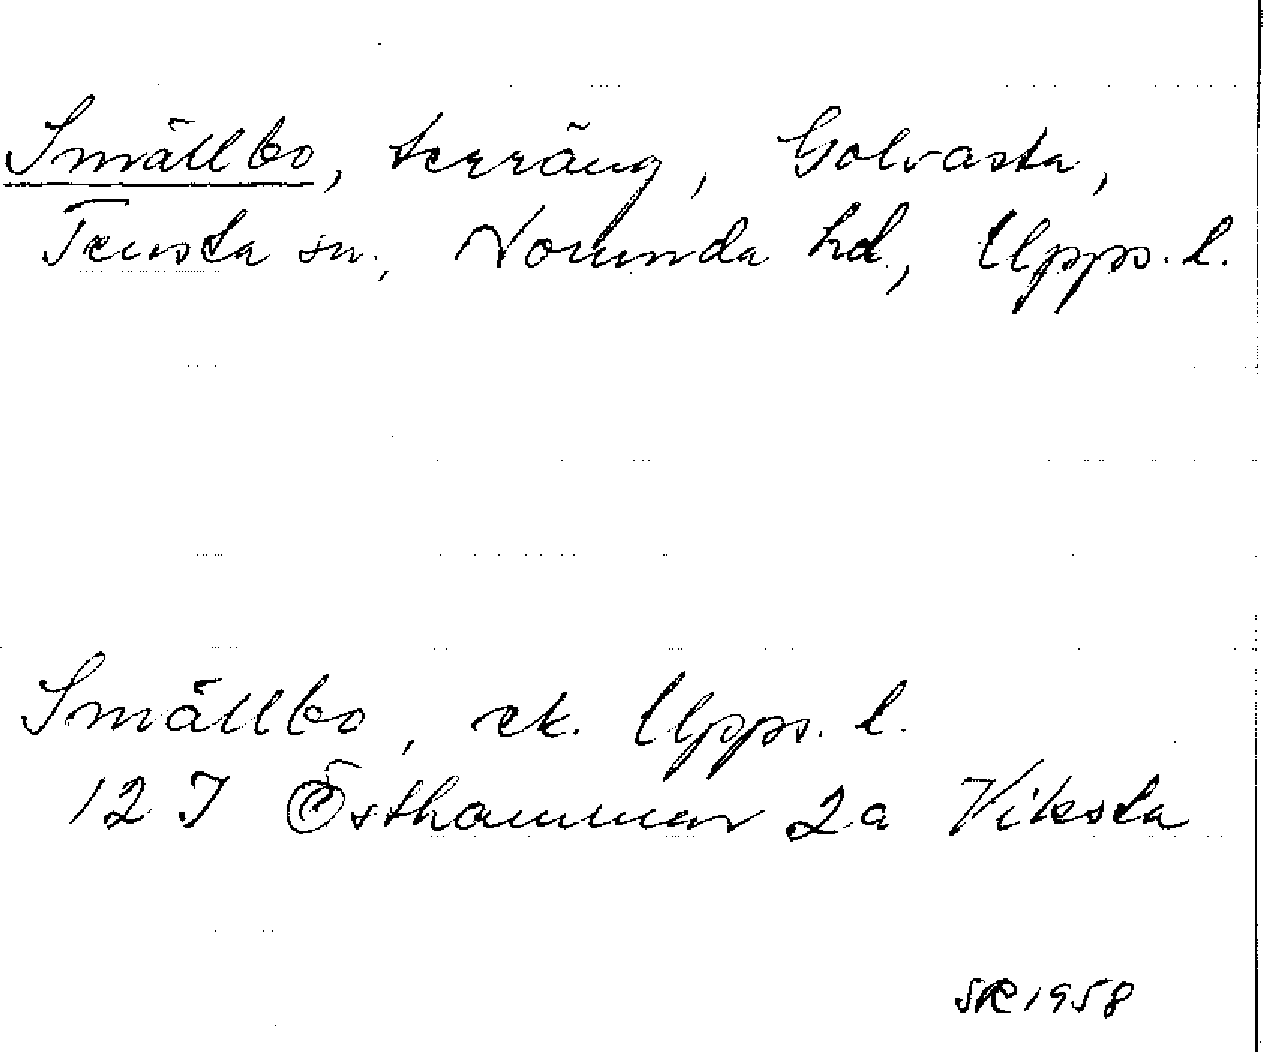 Smällbo, terräng, Golvasta,
Tensta sn., Norunda hd., Upps. l.
Smällbo, ek. Upps. l.
12 I Östhammar 2a Viksta
SR 1958